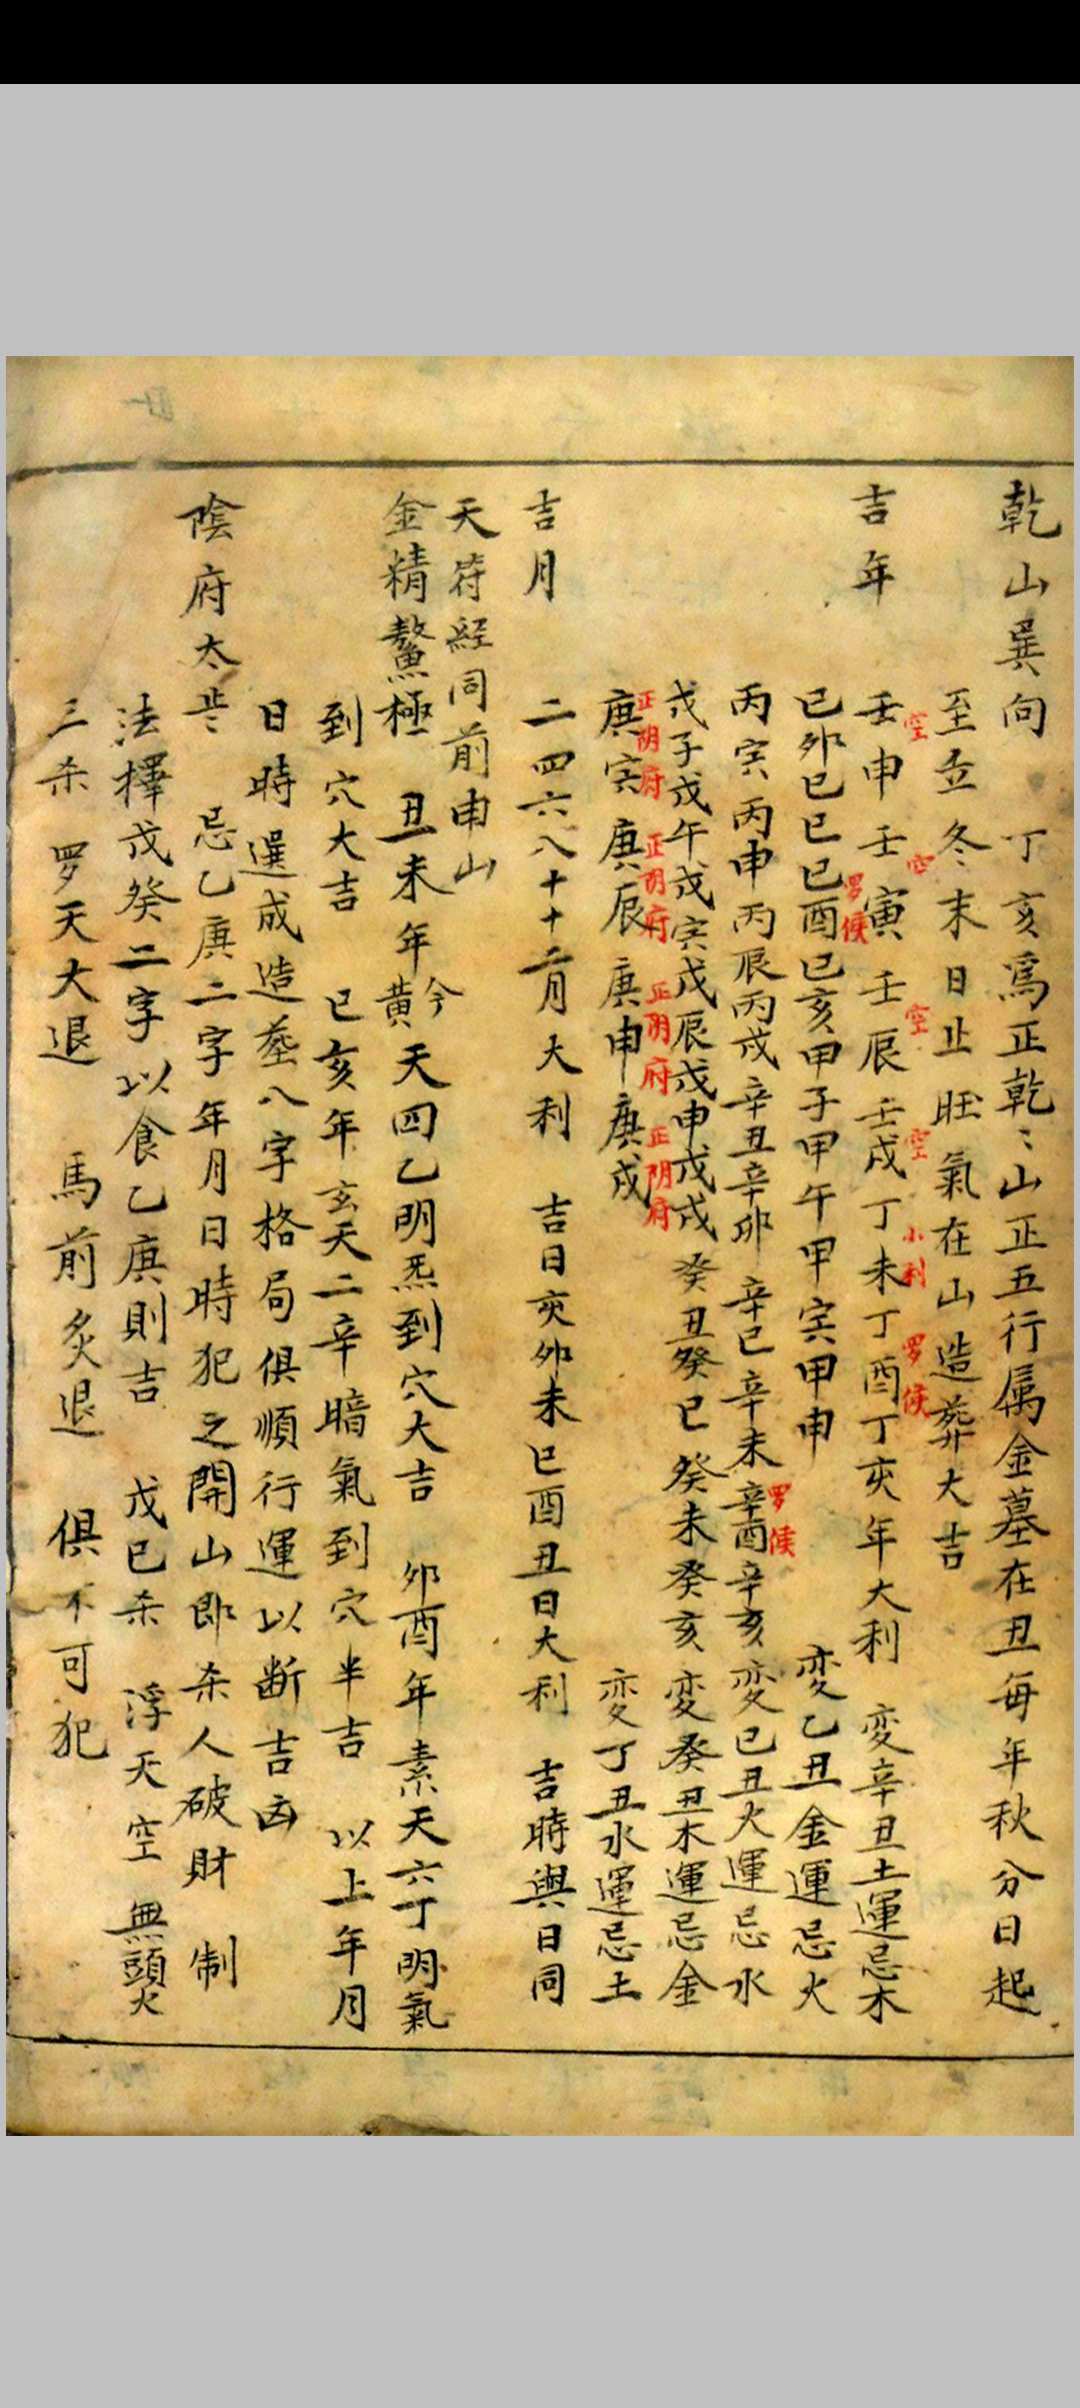 乾山巽向 丁亥為正乾〻山正五行属金墓在丑每年秋分日起
至立冬末日止旺氣在山造葬大吉
空 空 空 空 小利 罗候
吉年 壬申壬寅壬辰壬戌丁未丁酉丁亥年大利 変辛丑土運忌木
罗候
己卯己巳己酉己亥甲子甲午甲寅甲申 変乙丑金運忌火
罗候
丙寅丙申丙辰丙戌辛丑辛卯辛巳辛未辛酉辛亥 変己丑火運忌水
戊子戊午戊寅戊辰戊申戊戌癸丑癸巳癸未癸亥 変癸丑木運忌金
正阴府 正阴府 正阴府 正阴府
庚寅庚辰庚申庚戌 変丁丑水運忌土
吉月 二四六八十十二月大利 吉日亥卯未巳酉丑日大利 吉時與日同
天符經同前申山
金精鰲極 丑未年今黄天四乙明炁到穴大吉 卯酉年素天六丁明氣
到穴大吉 巳亥年玄天二辛暗氣到穴半吉 以上年月
日時選成造塟八字格局俱順行運以断吉凶
陰府太歩 忌乙庚二字年月日時犯之開山即杀人破財 制
法擇戊癸二字以食乙庚則吉 戊己杀 浮天空 無頭火
三杀 罗天大退 馬前炙退 俱不可犯